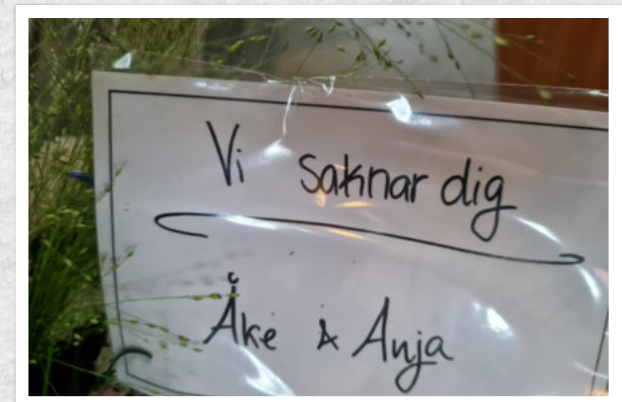 Vi saknar dig
Åke & Anja